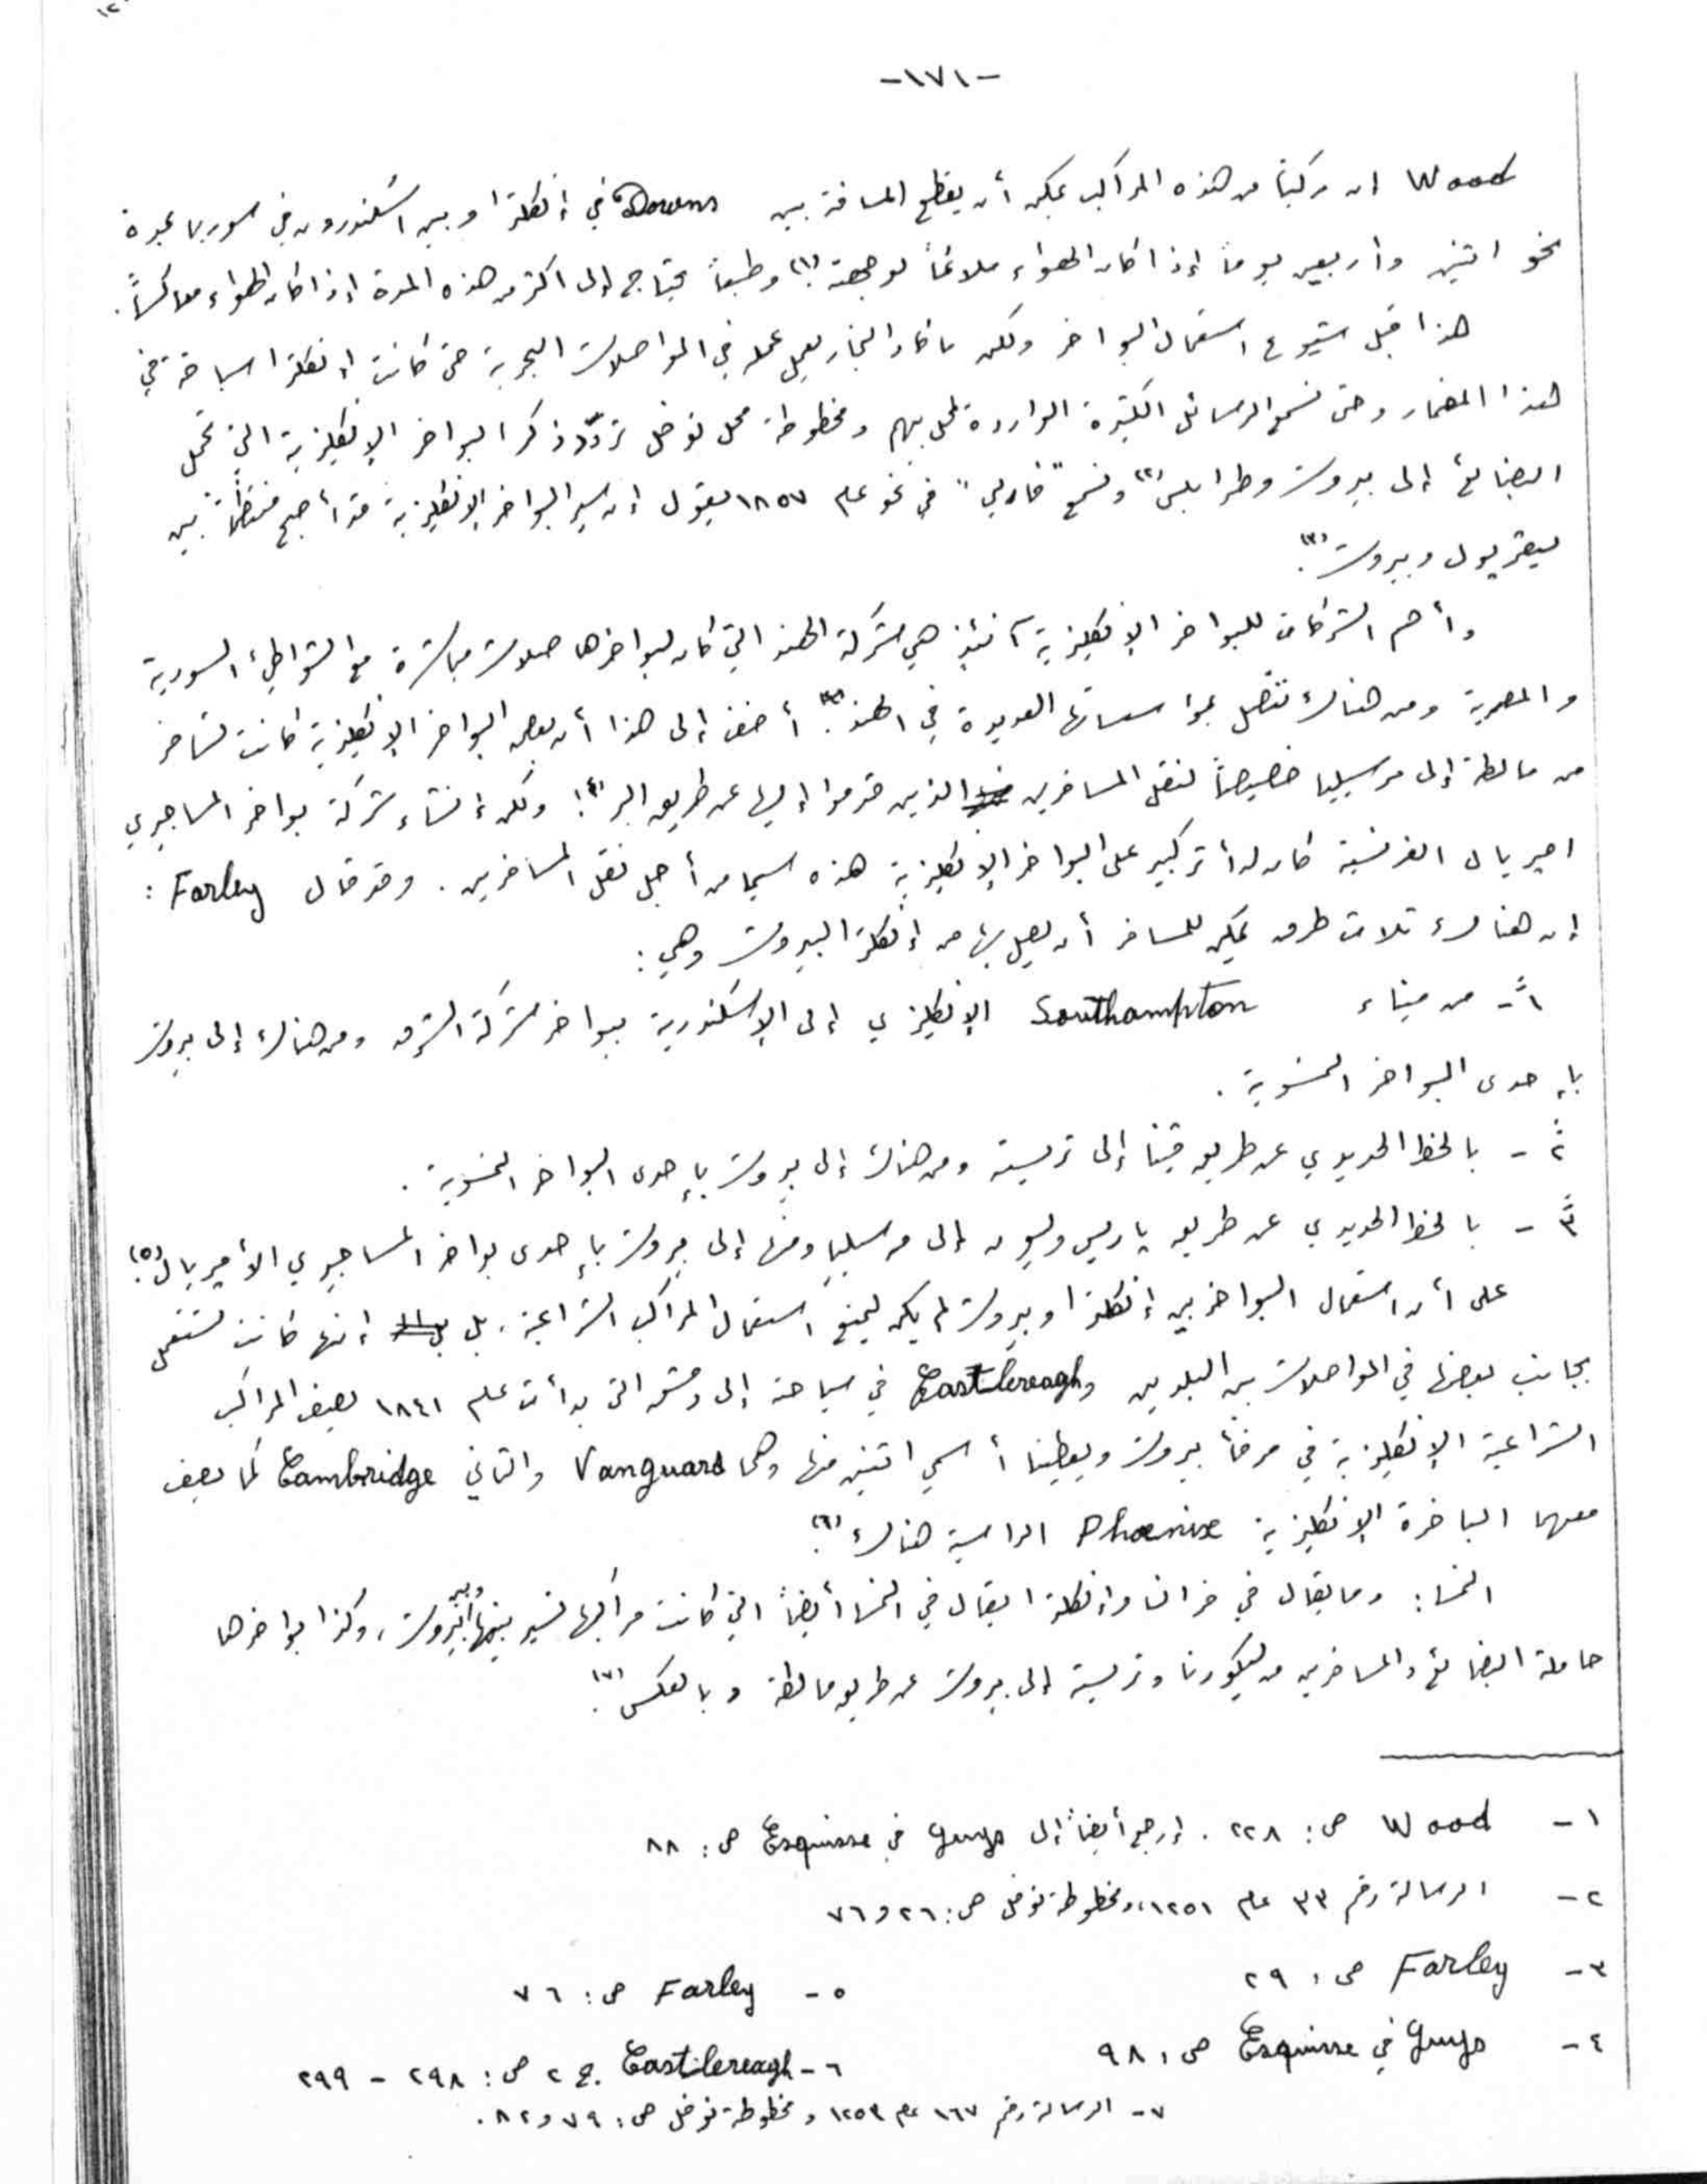 -١٧١-
Wood ان مركباً من هذه المراكب يمكن أن يقطع المسافة بين Downs في إنكلترا وبين اسكندرون في سوريا بمدة
نحو اثنين وأربعين يوماً إذا كان الهواء ملائماً لوجهته (١) وطبعاً يحتاج إلى اكثر من هذه المدة إذا كان الهواء معاكساً.
هذا قبل شيوع استعمال البواخر ولكن ما كاد البخار يعمل عمله في المواصلات البحرية حتى كانت إنكلترا سباقة في
هذا المضمار وحتى نسمع الرسائل الكثيرة الواردة لمحل بيهم ومخطوطة محل نوفل تردّد ذكر البواخر الإنكليزية التي تحمل
البضائع إلى بيروت وطرابلس (٢) ونسمع "فارلي" في نحو عام ١٨٥٧ يقول إن سير البواخر الإنكليزية قد أصبح منتظماً بين
ليفربول وبيروت (٣).
وأهم الشركات للبواخر الإنكليزية آنئذٍ هي شركة الهند التي كان لبواخرها صلات مباشرة مع الشواطئ السورية
والمصرية ومن هناك تتصل بمؤسساتها العديدة في الهند (٣). أضف إلى هذا أن بعض البواخر الإنكليزية كانت تسافر
من مالطة إلى مرسيليا خصيصاً لنقل المسافرين الذين قدموا إليها عن طريق البر (٤)! ولكن إنشاء شركة بواخر المساجيري
امبريال الفرنسية كان له أثر كبير على البواخر الإنكليزية هذه سيما من أجل نقل المسافرين. وقد قال Farley :
إن هناك ثلاث طرق يمكن للمسافر أن يصل بها من إنكلترا لبيروت وهي :
١ً - من ميناء Southampton الإنكليزي إلى الإسكندرية ببواخر شركة الشرق ومن هناك إلى بيروت
بإحدى البواخر النمسوية .
٢ً - بالخط الحديدي عن طريق فينا إلى تريستة ومن هناك إلى بيروت بإحدى البواخر النمسوية .
٣ً - بالخط الحديدي عن طريق باريس وليون إلى مرسيليا ومنها إلى بيروت بإحدى بواخر المساجيري الأمبريال (٥).
على أن استعمال البواخر بين إنكلترا وبيروت لم يكن ليمنع استعمال المراكب الشراعية . بل إنها كانت تستعمل
بجانب بعضها في المواصلات بين البلدين و Castlereagh في سياحته إلى دمشق التي بدأت عام ١٨٤١ يصف المراكب
الشراعية الإنكليزية في مرفأ بيروت ويعطينا أسمي اثنين منها وهما Vanguard والثاني Cambridge كما يصف
معهما الباخرة الإنكليزية Phoenix الراسية هناك (٦).
النمسا : وما يقال في فرانسا وإنكلترا يقال في النمسا أيضاً التي كانت مراكبها تسير بينها وبين بيروت ، وكذا بواخرها
حاملة البضائع والمسافرين من ليكورنا وتريستة إلى بيروت عن طريق مالطة وبالعكس (٧).
١ - Wood ص : ٢٢٨ . إرجع أيضاً إلى Guys في Esquisse ص : ٨٨
٢ - الرسالة رقم ٣٣ عام ١٢٥١ ، ومخطوطة نوفل ص : ٢٦ و ٧٦
٣ - Farley ص : ٢٩
٤ - Guys في Esquisse ص : ٩٨
٥ - Farley ص : ٧٦
٦ - Castlereagh ج ٢ ص : ٢٩٨ - ٢٩٩
٧ - الرسالة رقم ١٦٧ عام ١٢٥٣ ومخطوطة نوفل ص : ٧٩ و ٨٢ .